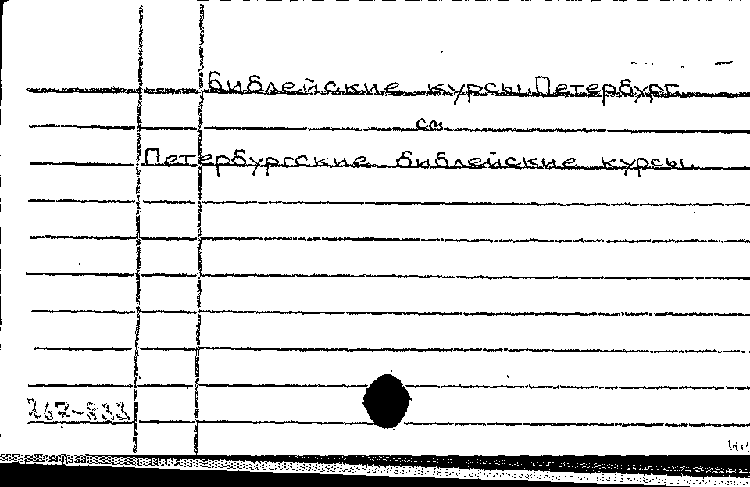 Библейские курсы. Петербург.
см.
Петербургские библейские курсы.
267-833